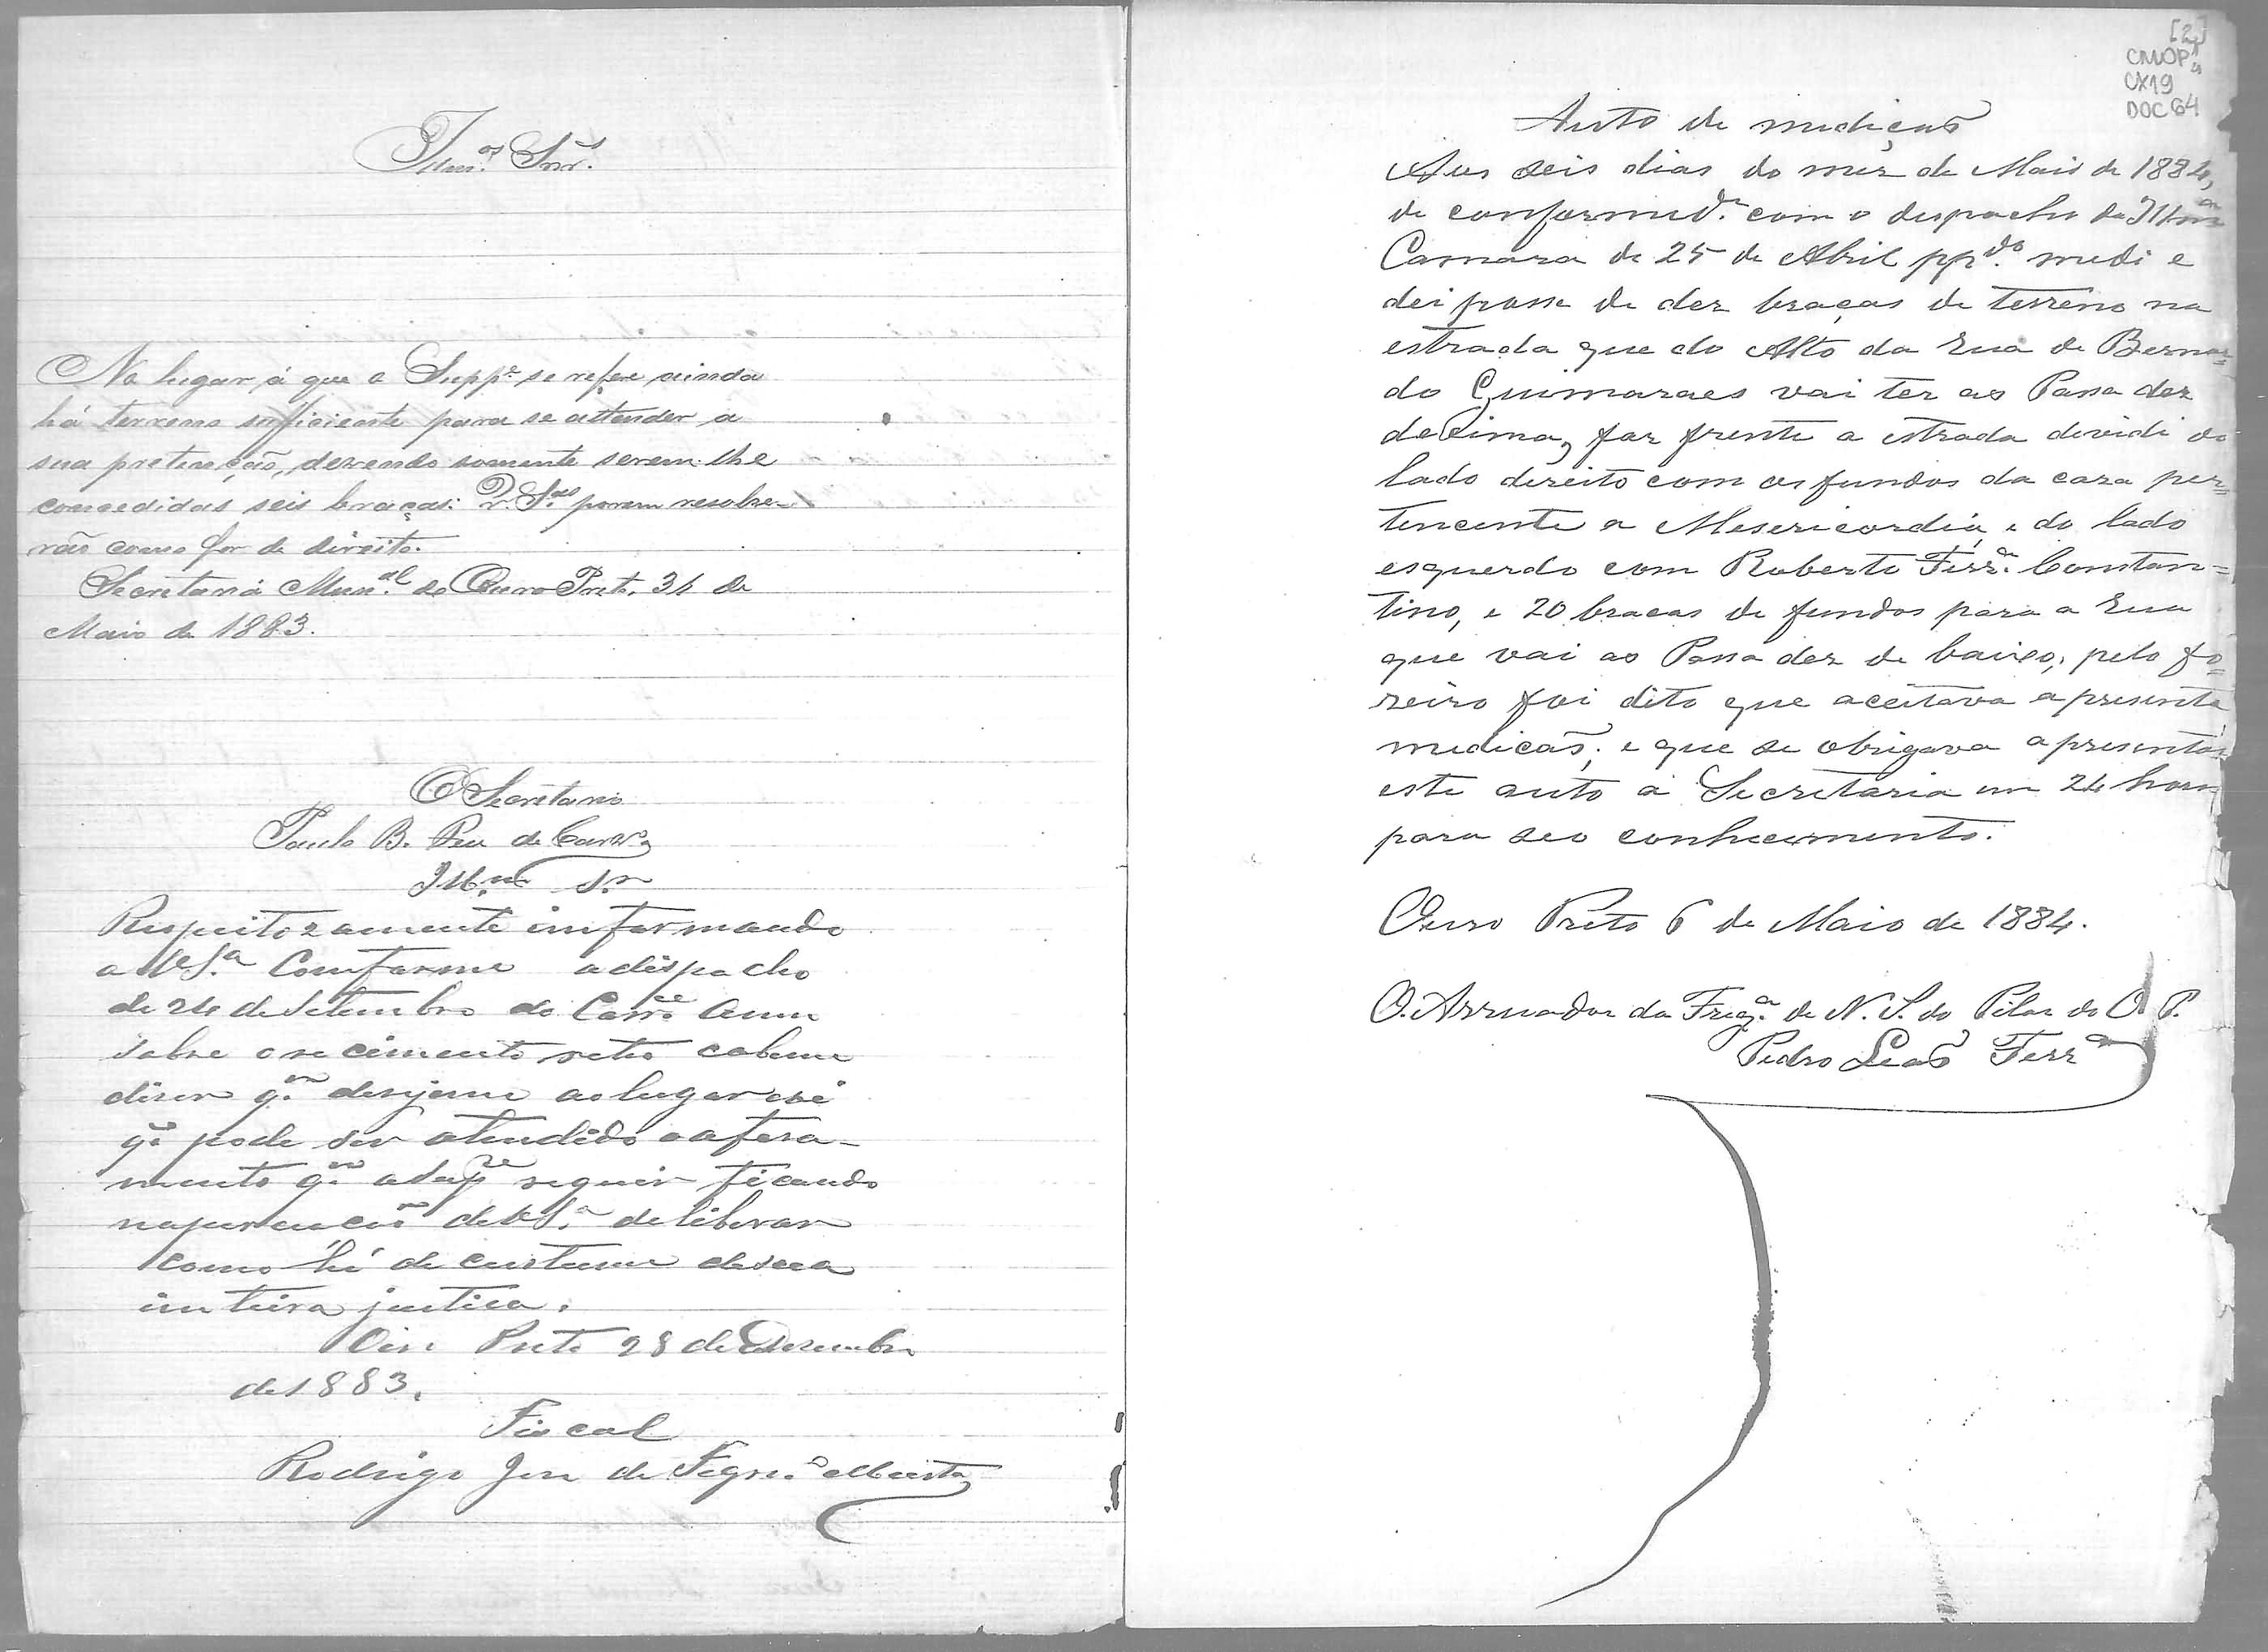 Illm.os Snrs.
No lugar á que o Supp.e se refere ainda
há terreno sufficiente para se attender a
sua pretenção, devendo somente serem-lhe
concedidas seis braças: V. S.as porem resolve-
rão como for de direito.
Secretaria Mun.al do Ouro Preto, 31 de
Maio de 1883.
O Secretario
Paulo B.
Illm.o Sr.
Respeitozamente imformando
a V.S.a Comforme a despacho
de 24 de Setembro do Corr.e Anno
sobre o
dizer q.e ao lugar
q.e pode ser atendido o afora-
mento q.e a Sup.e ficando
de V.S.a deliberar
como hé de custume
inteira justica.
Preto 28 de Dezembro
de 1883.
Fiscal
Rodrigo José de Figr.do
[2]
CMOP
CX19
DOC 64
Auto de mediçaõ
Aos seis dias do mez de Maio de 1884,
de conformid.e com o despacho da Illm.a
Camara de 25 de Abril pp.do medi e
dei posse de dez braças de terreno na
estrada que do Alto da rua de Bernar=
do Guimaraes vai ter ao Passa dez
de Cima, faz frente a estrada devidi do
lado direito com os fundos da caza per=
tencente a Mesericordia, e do lado
esquerdo com Roberto Ferr.a Constan=
tino, e 20 bracas de fundos para a rua
que vai ao Passa dez de baixo, pelo fo=
reiro foi dito que aceitava a presente
medicaõ, e que se obrigava apresentar
este auto a Secretaria em 24 horas
para seo conhecimento.
Ouro Preto 6 de Maio de 1884.
O. Arruador da Freg.a de N. S. do Pilar do O P.
Pedro Leaõ Ferr.a